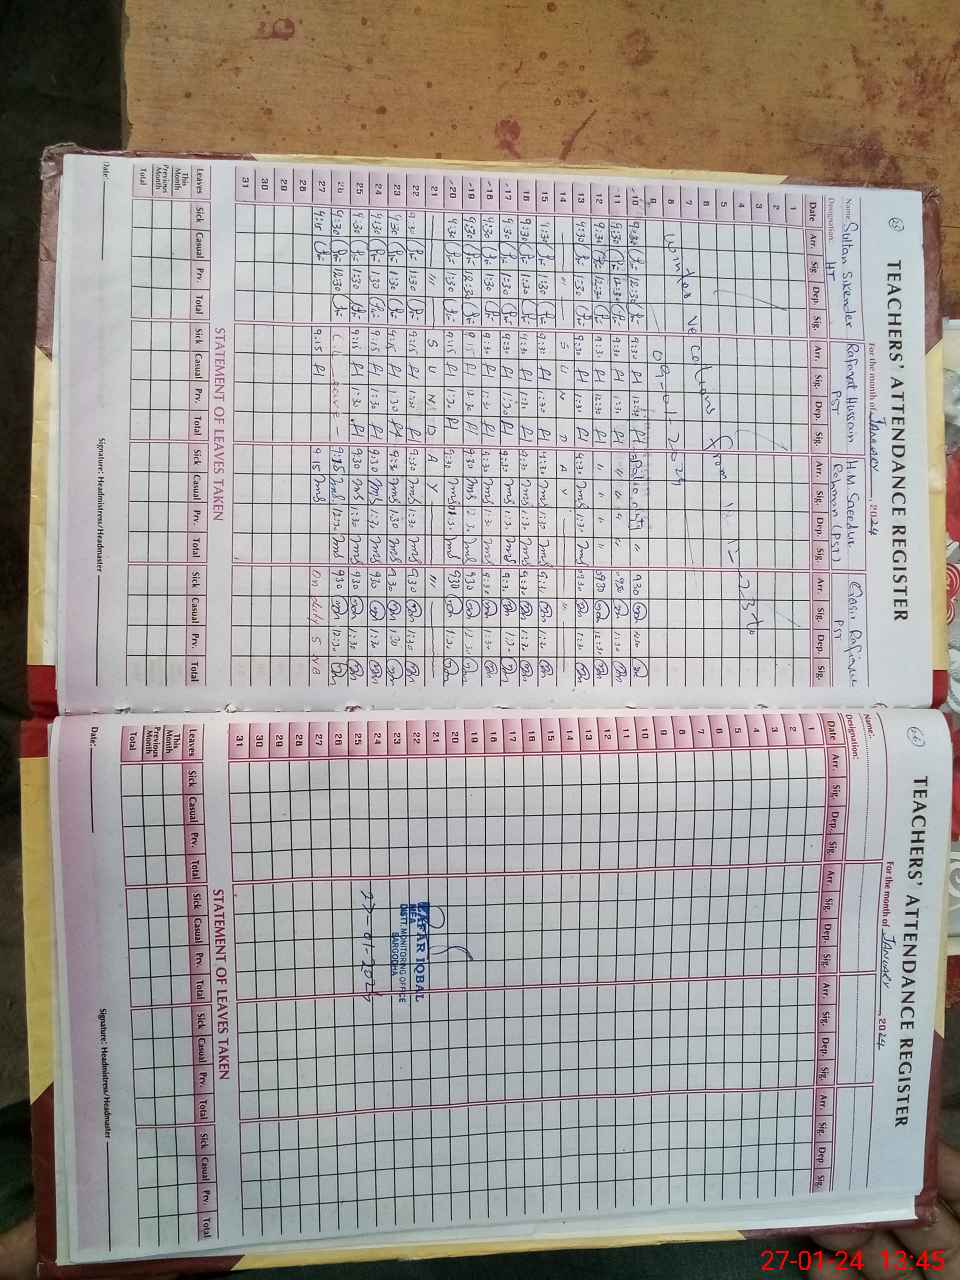 66
TEACHERS' ATTENDANCE REGISTER
For the month of JANUARY, 2024
Name: Sultan Sikender Rafaqat Hussain H.M. Saeedur Rehman (PST) Qasir Rafique
Designation: HT PST PST
Date Arr. Sig. Dep. Sig. Arr. Sig. Dep. Sig. Arr. Sig. Dep. Sig. Arr. Sig. Dep. Sig.
1
2
3
4
5
6
7
8
9
Winter Vecations from
09-01-2024
10 9:30 12:30 9:30 12:30 Polio duty 930
11 9:30 12:30 9:30 1:30 " " 930 1:30
12 9:30 9:30 12:30 " "
13 9:30 1:30 9:30 1:30 9:30 1:30 9:30 1:30
14 S U N D A Y
15 9:30 1:30 9:30 1:30 9:30 1:30 9:30 1:30
16 9:30 1:30 9:30 1:30 9:30 1:30 9:30 1:30
17 9:30 1:30 9:30 1:30 9:30 1:30 9:30 1:30
18 9:30 1:30 9:30 1:30 9:30 1:30 9:30 1:30
19 9:30 12:30 9:15 12:30 9:30 12:30 930 12:30
20 9:30 1:30 9:15 1:30 9:30 1:30 930 1:30
21 S U N D A Y
22 9:30 1:30 9:15 1:30 9:30 1:30 930 1:30
23 9:30 1:30 9:15 1:30 9:30 1:30 930 1:30
24 9:30 1:30 9:15 1:30 9:30 1:30 930 1:30
25 9:30 1:30 9:15 1:30 9:30 1:30 930 1:30
26 9:30 12:30 leave 9:15 12:30 930 12:30
27 9:15 9:15 9:15 On duty
28
29
30
31
STATEMENT OF LEAVES TAKEN
Leaves Sick Casual Prv. Total Sick Casual Prv. Total Sick Casual Prv. Total Sick Casual Prv. Total
This Month
Previous Month
Total
Date: Signature: Headmistress/Headmaster
66
TEACHERS' ATTENDANCE REGISTER
For the month of JANUARY 2024
Name:
Designation:
Date Arr. Sig. Dep. Sig. Arr. Sig. Dep. Sig. Arr. Sig. Dep. Sig. Arr. Sig. Dep. Sig.
1
2
3
4
5
6
7
8
9
10
11
12
13
14
15
16
17
18
19
20
21
22
23
24
25
26
27
28
29
30
31
ZAFAR IQBAL
MEA
DISTT. MONITORING OFFICE
SARGODHA
27-01-2024
STATEMENT OF LEAVES TAKEN
Leaves Sick Casual Prv. Total Sick Casual Prv. Total Sick Casual Prv. Total Sick Casual Prv. Total
This Month
Previous Month
Total
Date: Signature: Headmistress/Headmaster
27-01-24 13:45